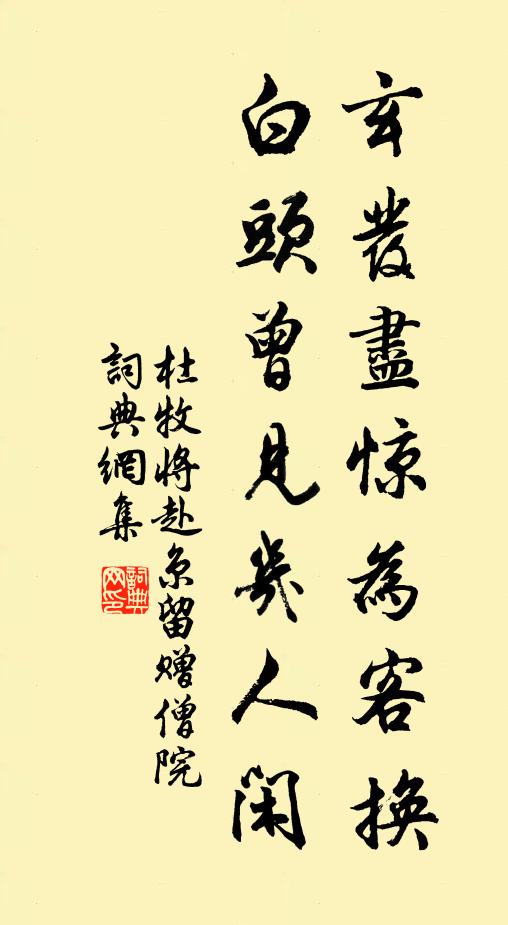 玄發盡惊為客換
白頭曾見幾人閑
杜牧將赴京留贈僧院
詞典網集
詞典网印